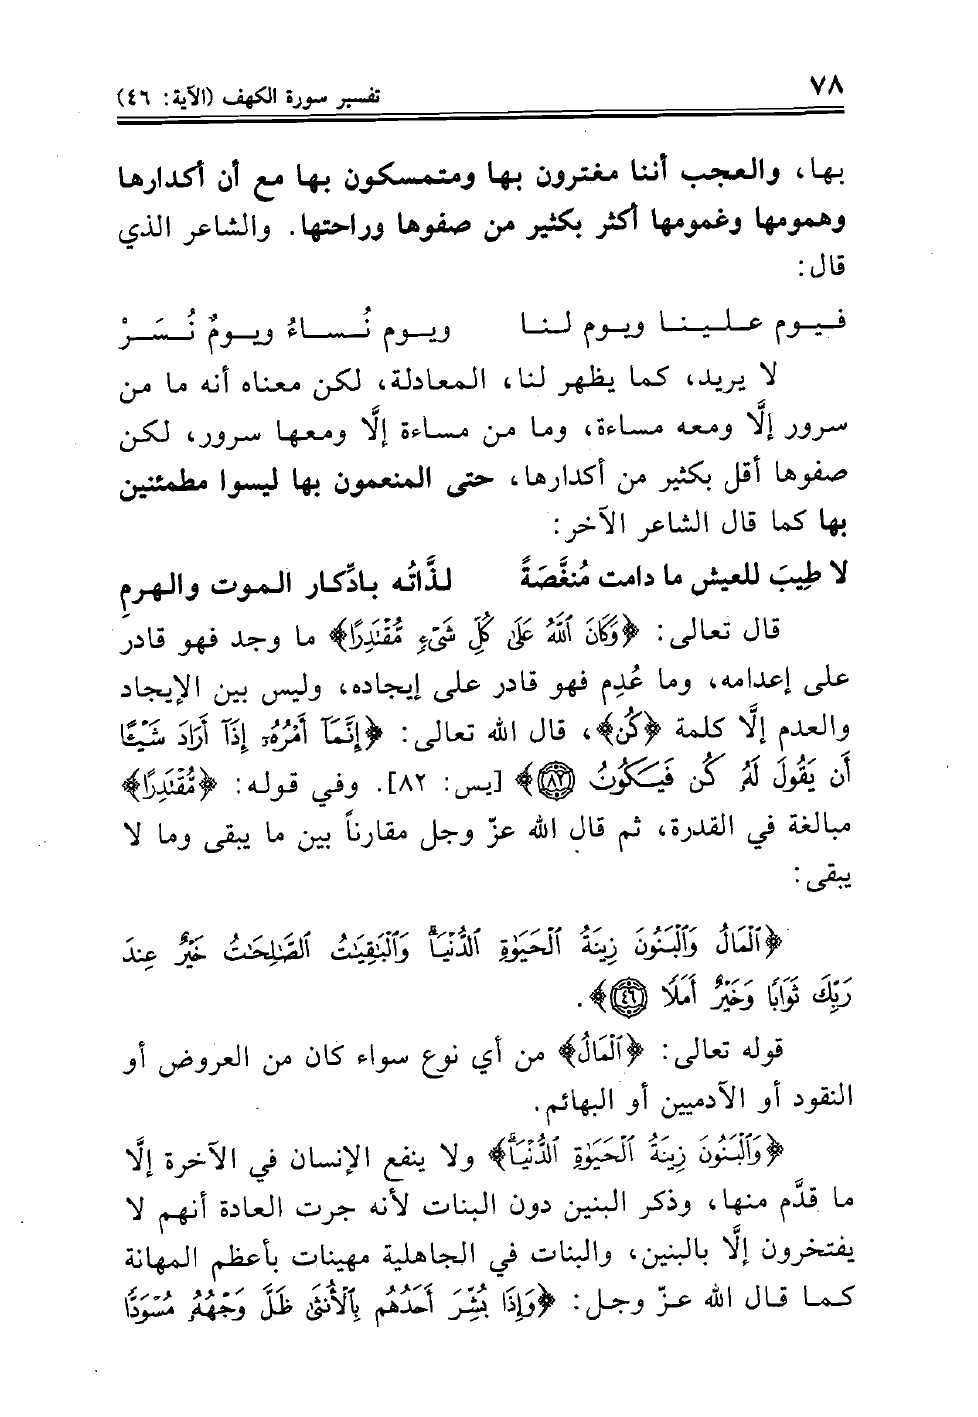 ٧٨
تفسير سورة الكهف (الآية: ٤٦)
بها، والعجب أننا مغترون بها ومتمسكون بها مع أن أكدارها
وهمومها وغمومها أكثر بكثير من صفوها وراحتها. والشاعر الذي
قال:
فيوم علينا ويوم لنا ويوم نُساءُ ويومٌ نُسَرْ
لا يريد، كما يظهر لنا، المعادلة، لكن معناه أنه ما من
سرور إلَّا ومعه مساءة، وما من مساءة إلَّا ومعها سرور، لكن
صفوها أقل بكثير من أكدارها، حتى المنعمون بها ليسوا مطمئنين
بها كما قال الشاعر الآخر:
لا طِيبَ للعيش ما دامت مُنغَّصَةً لذَّاتُه بادِّكار الموت والهرمِ
قال تعالى: ﴿وَكَانَ ٱللَّهُ عَلَىٰ كُلِّ شَىْءٍ مُّقْتَدِرًا﴾ ما وجد فهو قادر
على إعدامه، وما عُدِم فهو قادر على إيجاده، وليس بين الإيجاد
والعدم إلَّا كلمة ﴿كُن﴾، قال الله تعالى: ﴿إِنَّمَآ أَمْرُهُۥٓ إِذَآ أَرَادَ شَيْـًٔا
أَن يَقُولَ لَهُۥ كُن فَيَكُونُ ٨٢﴾ [يس: ٨٢]. وفي قوله: ﴿مُّقْتَدِرًا﴾
مبالغة في القدرة، ثم قال الله عزّ وجل مقارناً بين ما يبقى وما لا
يبقى:
﴿ٱلْمَالُ وَٱلْبَنُونَ زِينَةُ ٱلْحَيَوٰةِ ٱلدُّنْيَا ۖ وَٱلْبَٰقِيَٰتُ ٱلصَّٰلِحَٰتُ خَيْرٌ عِندَ
رَبِّكَ ثَوَابًا وَخَيْرٌ أَمَلًا ٤٦﴾.
قوله تعالى: ﴿ٱلْمَالُ﴾ من أي نوع سواء كان من العروض أو
النقود أو الآدميين أو البهائم.
﴿وَٱلْبَنُونَ زِينَةُ ٱلْحَيَوٰةِ ٱلدُّنْيَا ۖ﴾ ولا ينفع الإنسان في الآخرة إلَّا
ما قدَّم منها، وذكر البنين دون البنات لأنه جرت العادة أنهم لا
يفتخرون إلَّا بالبنين، والبنات في الجاهلية مهينات بأعظم المهانة
كما قال الله عزّ وجل: ﴿وَإِذَا بُشِّرَ أَحَدُهُم بِٱلْأُنثَىٰ ظَلَّ وَجْهُهُۥ مُسْوَدًّا